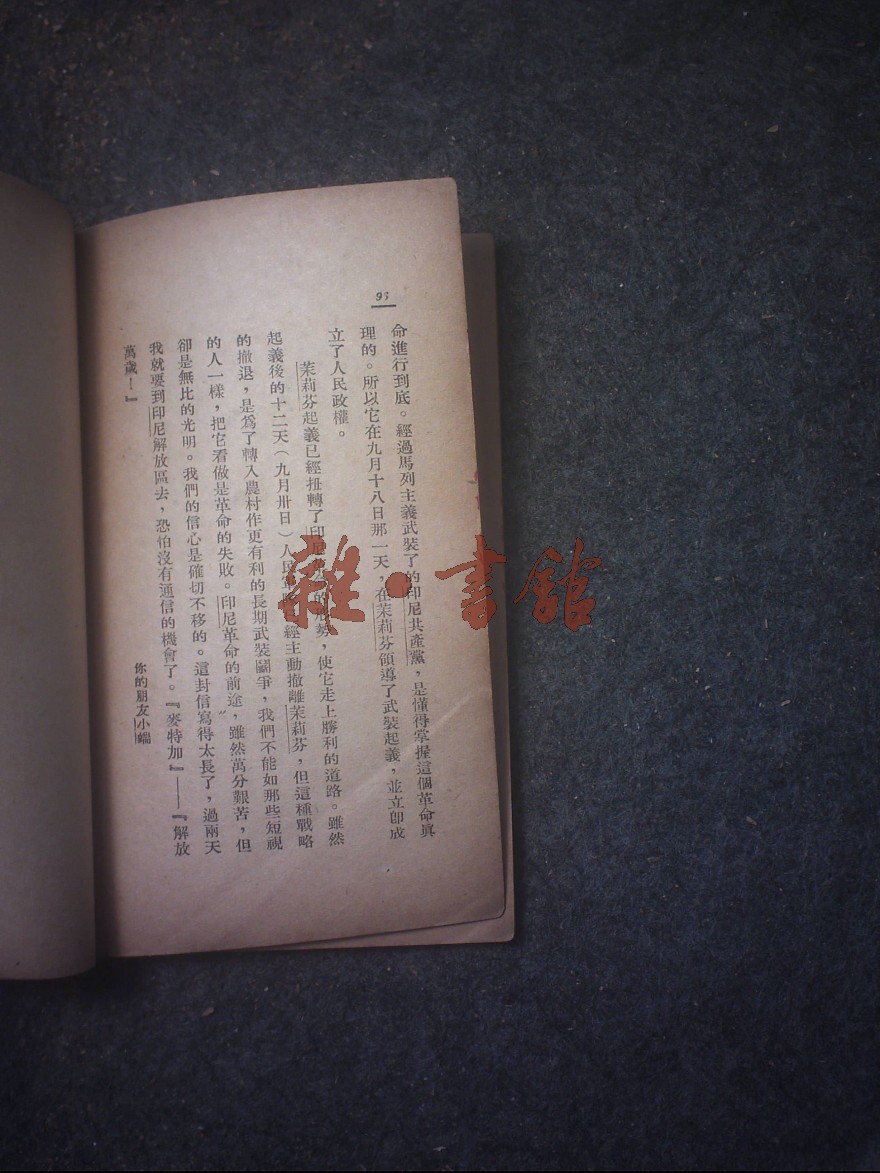 93
命進行到底。經過馬列主義武裝了的印尼共產黨，是懂得掌握這個革命眞
理的。所以它在九月十八日那一天，在茉莉芬領導了武裝起義，並立卽成
立了人民政權。
茉莉芬起義已經扭轉了印尼的形勢，使它走上勝利的道路。雖然
起義後的十二天（九月卅日）人民軍已經主動撤離茉莉芬，但這種戰略
的撤退，是爲了轉入農村作更有利的長期武裝鬭爭，我們不能如那些短視
的人一樣，把它看做是革命的失敗。印尼革命的前途，雖然萬分艱苦，但
卻是無比的光明。我們的信心是確切不移的。這封信寫得太長了，過兩天
我就要到印尼解放區去，恐怕沒有通信的機會了。『麥特加』——『解放
萬歲！』
你的朋友小端
雜·書館